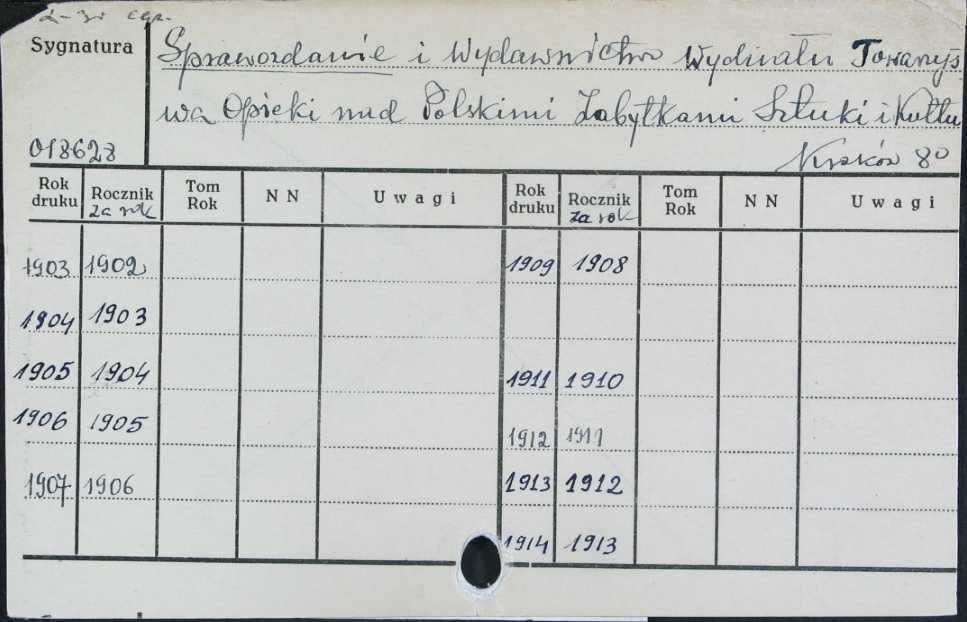 2-gi egz.
Sygnatura
Sprawozdanie i Wydawnictwo Wydziału Towarzys
wa Opieki nad Polskimi Zabytkami Sztuki i Kultu
018628
Kraków 8º
Rok druku Rocznik za rok Tom Rok N N Uwagi Rok druku Rocznik za rok Tom Rok N N Uwagi
1903 1902 1909 1908
1904 1903
1905 1904 1911 1910
1906 1905 1912 1911
1907 1906 1913 1912
1914 1913